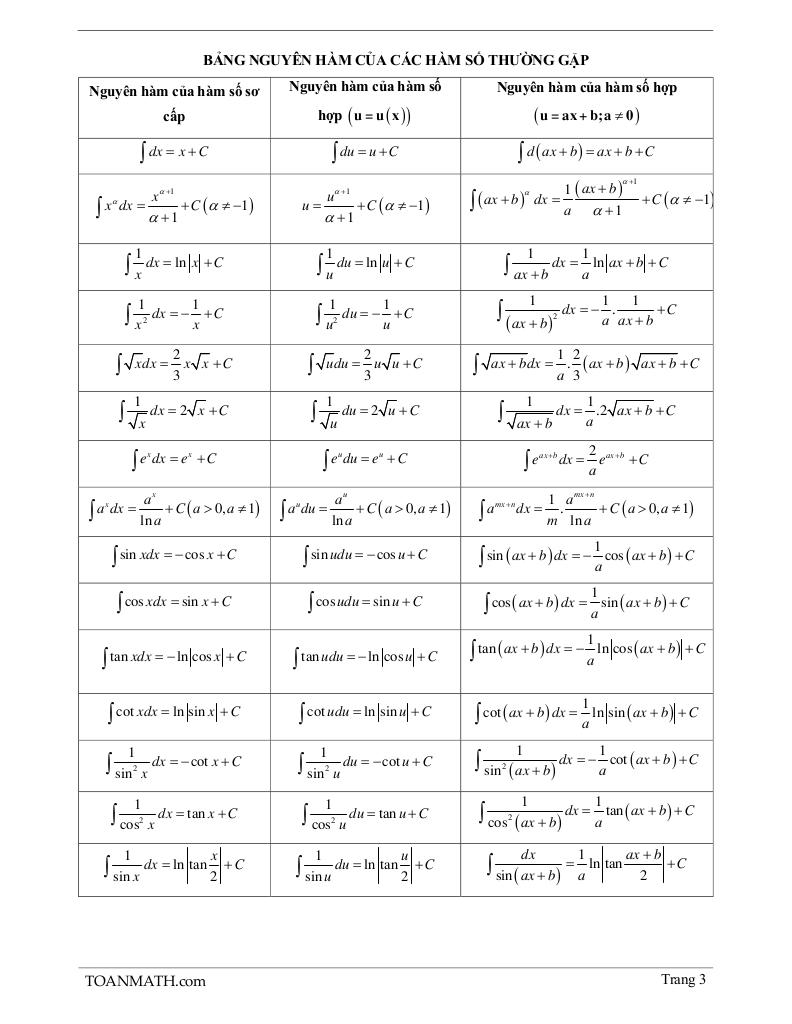 BẢNG NGUYÊN HÀM CỦA CÁC HÀM SỐ THƯỜNG GẶP
Nguyên hàm của hàm số sơ cấp | Nguyên hàm của hàm số hợp (u = u(x)) | Nguyên hàm của hàm số hợp (u = ax + b; a ≠ 0)
∫dx = x + C | ∫du = u + C | ∫d(ax + b) = ax + b + C
∫x^α dx = x^(α+1)/(α+1) + C (α ≠ −1) | u = u^(α+1)/(α+1) + C (α ≠ −1) | ∫(ax + b)^α dx = 1/a (ax + b)^(α+1)/(α+1) + C (α ≠ −1)
∫1/x dx = ln|x| + C | ∫1/u du = ln|u| + C | ∫1/(ax + b) dx = 1/a ln|ax + b| + C
∫1/x² dx = −1/x + C | ∫1/u² du = −1/u + C | ∫1/(ax + b)² dx = −1/a . 1/(ax + b) + C
∫√x dx = 2/3 x√x + C | ∫√u du = 2/3 u√u + C | ∫√(ax + b) dx = 1/a . 2/3 (ax + b)√(ax + b) + C
∫1/√x dx = 2√x + C | ∫1/√u du = 2√u + C | ∫1/√(ax + b) dx = 1/a . 2√(ax + b) + C
∫e^x dx = e^x + C | ∫e^u du = e^u + C | ∫e^(ax+b) dx = 2/a e^(ax+b) + C
∫a^x dx = a^x/ln a + C (a > 0, a ≠ 1) | ∫a^u du = a^u/ln a + C (a > 0, a ≠ 1) | ∫a^(mx+n) dx = 1/m . a^(mx+n)/ln a + C (a > 0, a ≠ 1)
∫sin xdx = −cos x + C | ∫sin udu = −cos u + C | ∫sin(ax + b)dx = −1/a cos(ax + b) + C
∫cos xdx = sin x + C | ∫cos udu = sin u + C | ∫cos(ax + b)dx = 1/a sin(ax + b) + C
∫tan xdx = −ln|cos x| + C | ∫tan udu = −ln|cos u| + C | ∫tan(ax + b)dx = −1/a ln|cos(ax + b)| + C
∫cot xdx = ln|sin x| + C | ∫cot udu = ln|sin u| + C | ∫cot(ax + b)dx = 1/a ln|sin(ax + b)| + C
∫1/sin² x dx = −cot x + C | ∫1/sin² u du = −cot u + C | ∫1/sin²(ax + b) dx = −1/a cot(ax + b) + C
∫1/cos² x dx = tan x + C | ∫1/cos² u du = tan u + C | ∫1/cos²(ax + b) dx = 1/a tan(ax + b) + C
∫1/sin x dx = ln|tan x/2| + C | ∫1/sin u du = ln|tan u/2| + C | ∫dx/sin(ax + b) = 1/a ln|tan (ax + b)/2| + C
TOANMATH.com
Trang 3